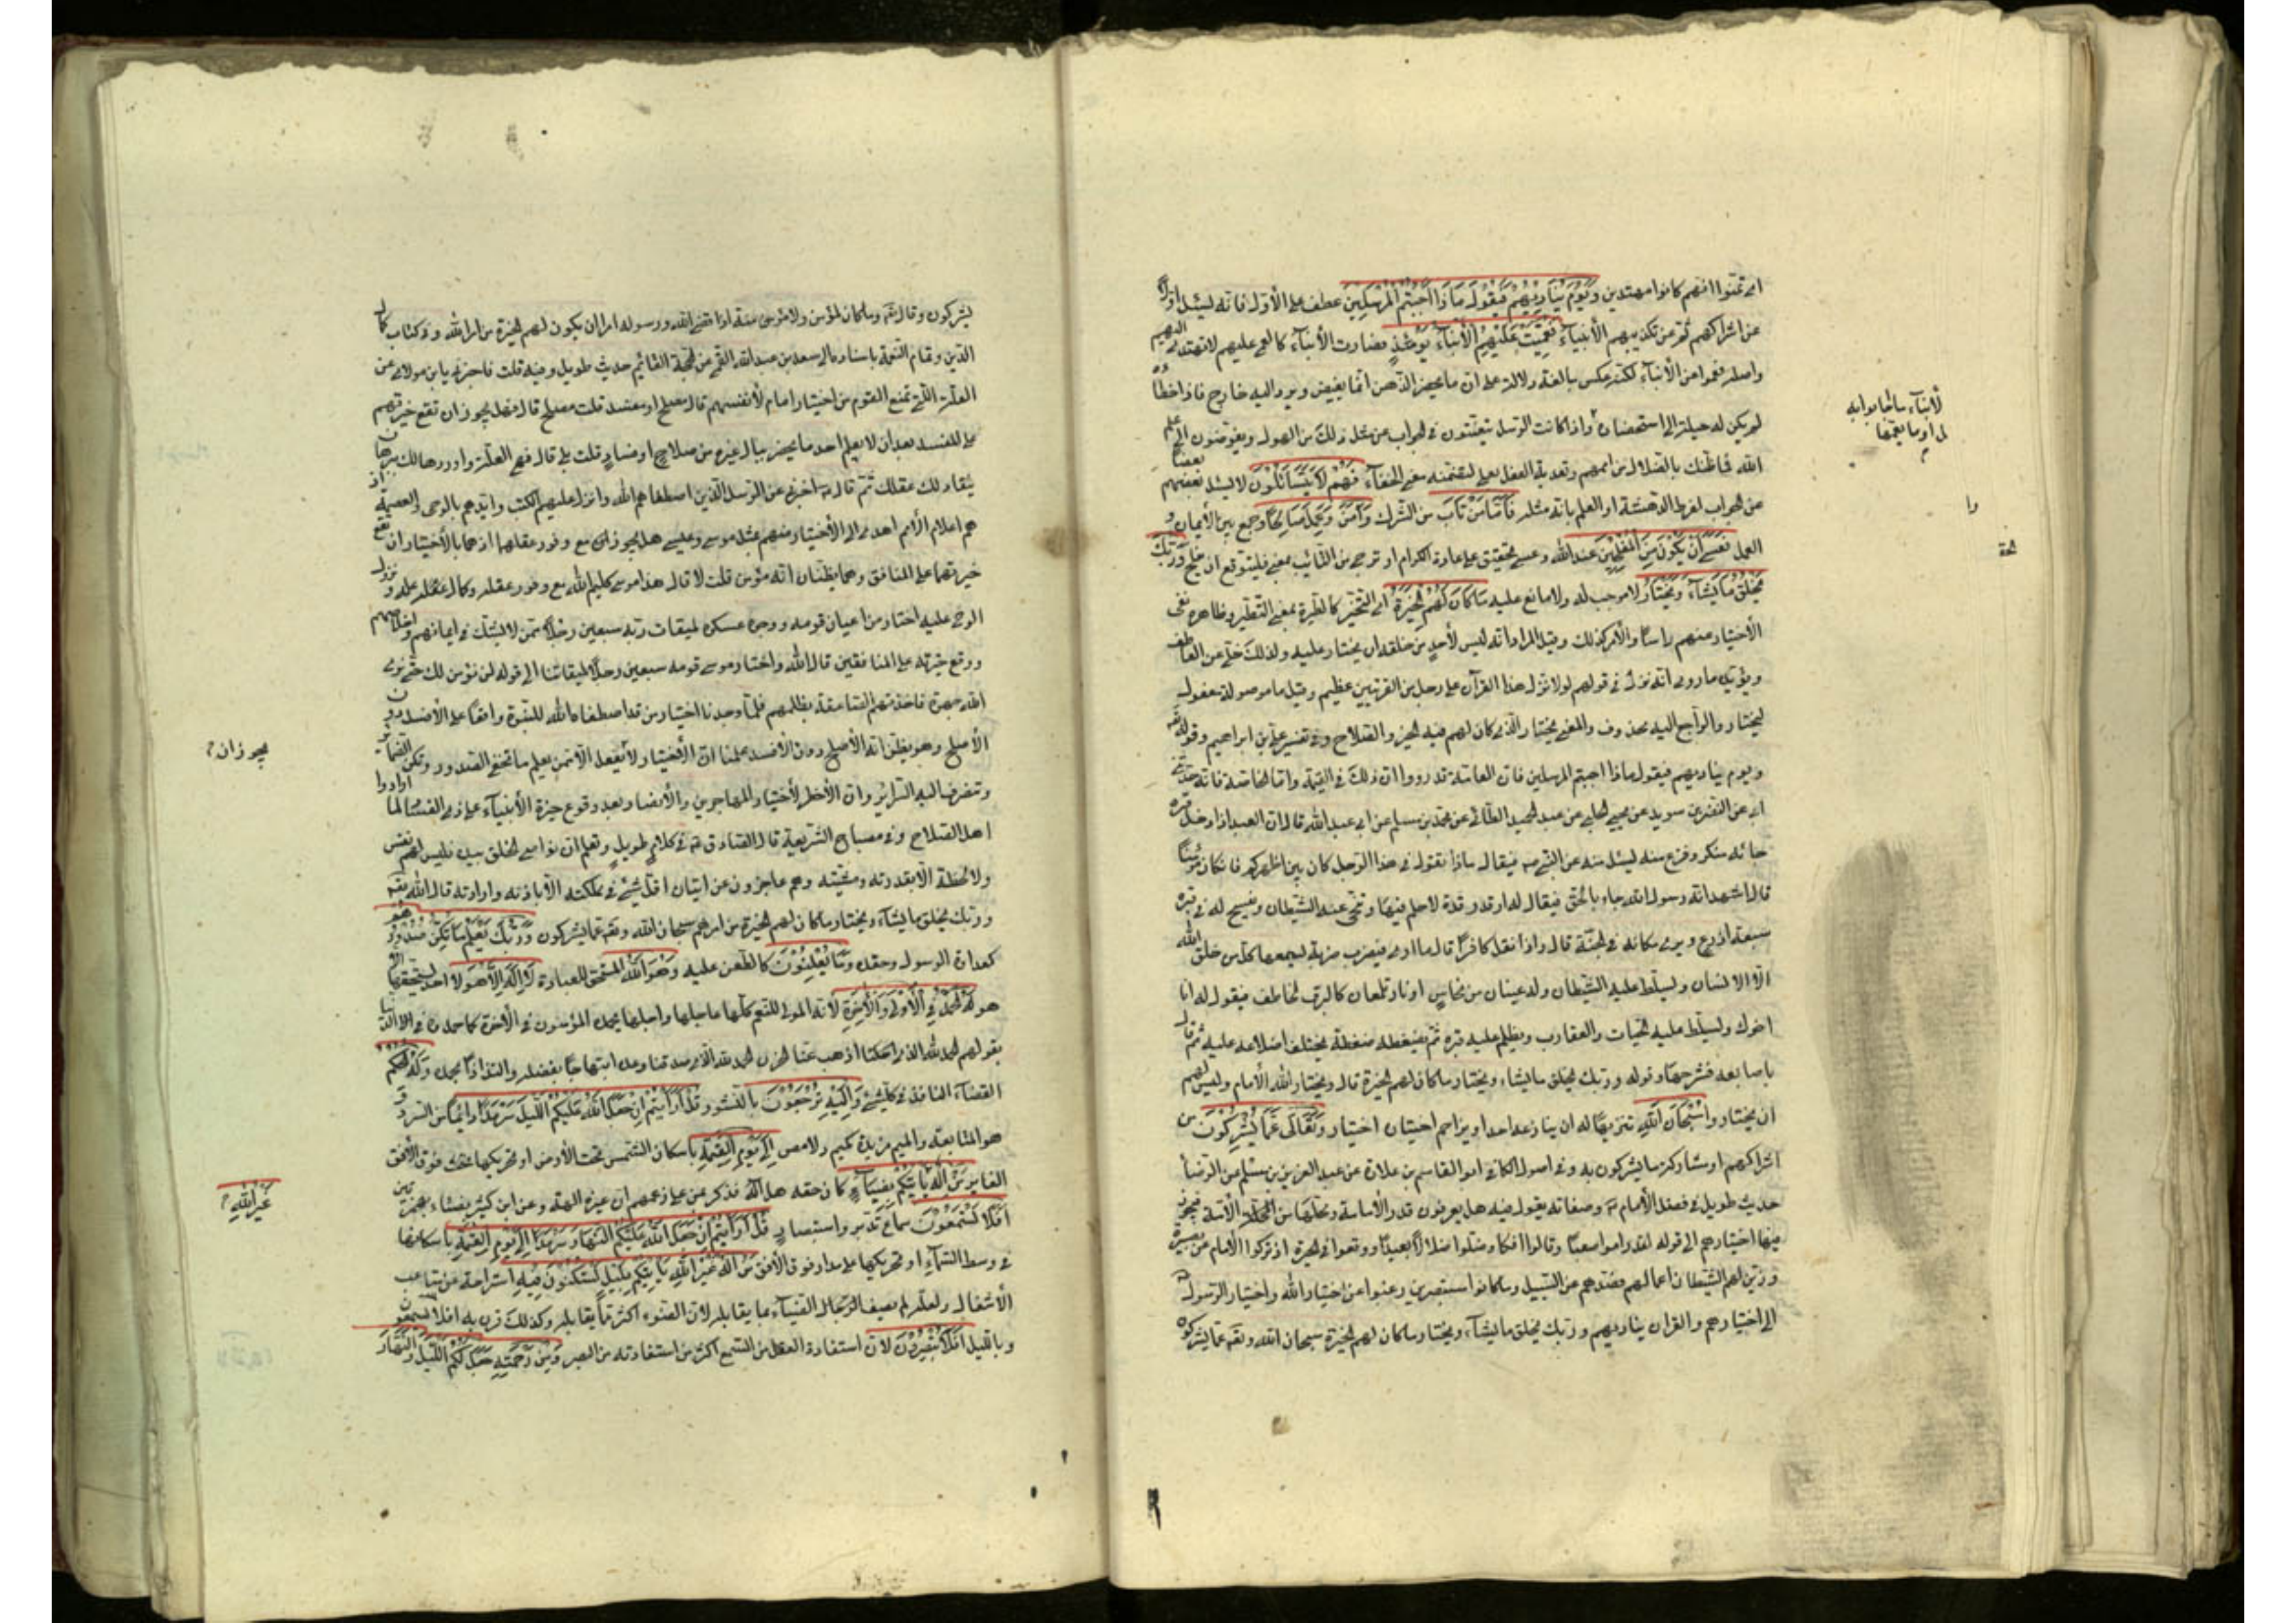 اى تمنّوا انهم كانوا مهتدين وَيَوْمَ يُنَادِيهِمْ فَيَقُولُ مَاذَا أَجَبْتُمُ الْمُرْسَلِينَ عطف على الأول فانه يسئل اولا
عن اشراكهم ثم عن تكذيبهم الأنبياء فَعَمِيَتْ عَلَيْهِمُ الْأَنْبَاءُ يَوْمَئِذٍ فصارت الأنباء كالعمى عليهم لا تهتدى اليهم
واصله فعموا عن الأنباء لكنه عكس مبالغة ودلالة على ان ما يحضر الذهن انما يفيض ويرد اليه من خارج فاذا اخطأه
لم يكن له حيلة الى استحضاره واذا كانت الرسل يتعتعون فى الجواب عن مثل ذلك من الهول ويفوضون الى علم
الله فما ظنك بالضلال من اممهم وتعدية الفعل بعلى لتضمنه معنى الخفاء فَهُمْ لَا يَتَسَاءَلُونَ لا يسئل بعضهم بعضا
عن الجواب لفرط الدهشة او العلم بانه مثله فَأَمَّا مَنْ تَابَ من الشرك وَآمَنَ وَعَمِلَ صَالِحًا وجمع بين الأيمان و
العمل فَعَسَى أَنْ يَكُونَ مِنَ الْمُفْلِحِينَ عند الله وعسى تحقيق على عادة الكرام او ترجى من التائب بمعنى فليتوقع ان يفلح وَرَبُّكَ
يَخْلُقُ مَا يَشَاءُ وَيَخْتَارُ لا موجب له ولا مانع عليه مَا كَانَ لَهُمُ الْخِيَرَةُ اى التخير كالطيرة بمعنى التطير وظاهره نفى
الأختيار منهم راسا والأمر كذلك وقيل المراد انه ليس لأحد من خلقه ان يختار عليه ولذلك خلى عن العاطف
ويؤيده ما روى انه نزل فى قولهم لولا نزل هذا القرآن على رجل من القريتين عظيم وقيل ما موصولة مفعول
ليختار والراجع اليه محذوف والمعنى ويختار الذى كان لهم فيه الخير والصلاح وفى تفسير على بن ابراهيم وقوله
ويوم يناديهم فيقول ماذا اجبتم المرسلين فان العامة قد رووا ان ذلك فى القيمة واما الخاصة فانه حدثنى
ابى عن النضر بن سويد عن يحيى الحلبى عن عبد الحميد الطائى عن محمد بن مسلم عن ابى عبد الله قال ان العبد اذا دخل قبره
جائه منكر وفزع منه ليسئل منه عن النبى فيقال ماذا تقول فى هذا الرجل كان بين اظهركم فان كان مؤمنا
قال اشهد انه رسول الله جاء بالحق فيقال له ارقد رقدة لا حلم فيها وتنحى عنه الشيطان ويفسح له فى قبره
سبعة اذرع ويرى مكانه فى الجنة قال واذا كان كافرا قال ما ادرى فيضرب ضربة يسمعها كل من خلق الله
الا الأنسان ويسلط عليه الشيطان وله عينان من نحاس او نار تلمعان كالبرق الخاطف فيقول له انا
اخوك ويسلط عليه الحيات والعقارب ويظلم عليه قبره ثم يضغطه ضغطة يختلف اضلاعه عليه ثم قال
باصابعه فشرجها وقوله وربك يخلق ما يشاء ويختار ما كان لهم الخيرة قال ويختار الله الأمام وليس لهم
ان يختاروا سُبْحَانَ اللَّهِ تنزيها له ان ينازعه احد او يزاحم اختياره اختيار وَتَعَالَى عَمَّا يُشْرِكُونَ عن
اشراكهم او مشاركة ما يشركون به وفى اصول الكافى ابو القاسم بن علاء عن عبد العزيز بن مسلم عن الرضا
حديث طويل فى فضل الأمام وصفاته يقول فيه هل يعرفون قدر الأمامة ومحلها من الأمة فيجوز
فيها اختيارهم الى قوله لقد راموا صعبا وقالوا افكا وضلوا ضلالا بعيدا ووقعوا فى الحيرة اذ تركوا الأمام عن بصيرة
وزين لهم الشيطان اعمالهم فصدهم عن السبيل وما كانوا مستبصرين رغبوا عن اختيار الله واختيار الرسول
الى اختيارهم والقران يناديهم وربك يخلق ما يشاء ويختار ما كان لهم الخيرة سبحان الله وتعالى عما يشركون
لأنباء ما اجابوا به
را
يشركون وقال وما كان لمؤمن ولا مؤمنة اذا قضى الله ورسوله امرا ان يكون لهم الخيرة من امرهم وفى كتاب كمال
الدين وتمام النعمة باسناده الى سعد بن عبد الله القمى عن الحجة القائم حديث طويل وفيه قلت فاخبرنى يا بن مولاى عن
العلة التى تمنع القوم من اختيار امام لأنفسهم قال مصلح او مفسد قلت مصلح قال فهل يجوز ان تقع خيرتهم
على المفسد بعد ان لا يعلم احد ما يخطر ببال غيره من صلاح او فساد قلت بلى قال فهى العلة واوردها لك ببرهان
ينقاد لك عقلك ثم قال اخبرنى عن الرسل الذين اصطفاهم الله وانزل عليهم الكتب وايدهم بالوحى والعصمة اذ
هم اعلام الأمم اهدى الى الأختيار منهم مثل موسى وعيسى هل يجوز مع وفور عقلهما اذ هما بالأختيار ان تقع
خيرتهما على المنافق وهما يظنان انه مؤمن قلت لا قال هذا موسى كليم الله مع وفور عقله وكمال علمه ونزول
الوحى عليه اختار من اعيان قومه ووجوه عسكره لميقات ربه سبعين رجلا ممن لا يشك فى ايمانهم واخلاصهم
ووقع خيرته على المنافقين قال الله واختار موسى قومه سبعين رجلا لميقاتنا الى قوله لن نؤمن لك حتى نرى
الله جهرة فاخذتهم الصاعقة بظلمهم فلما وجدنا اختيار من قد اصطفاه الله للنبوة واقعا على الأفسد دون
الأصلح وهو يظن انه الأصلح دون الأفسد علمنا ان الأختيار لا يفعل الا من يعلم ما تخفى الصدور وتكن الضمائر
وتتصرف اليه السرائر وان لا خطر لأختيار المهاجرين والأنصار بعد وقوع خيرة الأنبياء على ذوى الفساد لما ارادوا
اهل الصلاح وفى مصباح الشريعة قال الصادق فى كلام طويل وتعلم ان نواصى الخلق بيده فليس لهم نفس
ولا لحظة الا بقدرته ومشيته وهم عاجزون عن اتيان اقل شىء فى مملكته الا باذنه وارادته قال الله
وربك يخلق ما يشاء ويختار ما كان لهم الخيرة من امرهم سبحان الله وتعالى عما يشركون وَرَبُّكَ يَعْلَمُ مَا تُكِنُّ صُدُورُهُمْ
كعداوة الرسول وحقده وَمَا يُعْلِنُونَ كالطعن عليه وَهُوَ اللَّهُ المستحق للعبادة لَا إِلَهَ إِلَّا هُوَ لا احد يستحقها الا
هو لَهُ الْحَمْدُ فِي الْأُولَى وَالْآخِرَةِ لأنه المولى للنعم كلها عاجلها واجلها يحمده المؤمنون فى الأخرة كما حمدوه فى الدنيا
بقولهم الحمد لله الذى اذهب عنا الحزن الحمد لله الذى صدقنا وعده ابتهاجا بفضله والتذاذا بحمده وَلَهُ الْحُكْمُ
القضاء النافذ فى كل شىء وَإِلَيْهِ تُرْجَعُونَ بالنشور قُلْ أَرَأَيْتُمْ إِنْ جَعَلَ اللَّهُ عَلَيْكُمُ اللَّيْلَ سَرْمَدًا دائما من السرد و
هو المتابعة والميم مزيدة كميم دلامص إِلَى يَوْمِ الْقِيَمَةِ باسكان الشمس تحت الأرض او تحريكها فوق الأفق
الغاير مَنْ إِلَهٌ يَأْتِيكُمْ بِضِيَاءٍ كان حقه هل اله فذكر بمن على زعمهم ان غيره الهة وعن ابن كثير بضئاء بهمزتين
أَفَلَا تَسْمَعُونَ سماع تدبر واستبصار قُلْ أَرَأَيْتُمْ إِنْ جَعَلَ اللَّهُ عَلَيْكُمُ النَّهَارَ سَرْمَدًا إِلَى يَوْمِ الْقِيَمَةِ باسكانها
فى وسط السماء او تحريكها على مدار فوق الأفق مَنْ إِلَهٌ غَيْرُ اللَّهِ يَأْتِيكُمْ بِلَيْلٍ تَسْكُنُونَ فِيهِ استراحة عن متاعب
الأشغال ولعله لم يصف الضياء بما يقابله لأن الضوء اكثر مما يقابله وكذلك قرن به افلا تسمعون
وبالليل أَفَلَا تُبْصِرُونَ لأن استفادة العقل من السمع اكثر من استفادته من البصر وَمِنْ رَحْمَتِهِ جَعَلَ لَكُمُ اللَّيْلَ وَالنَّهَارَ
يجوز ان
غَيْرُ اللَّهِ